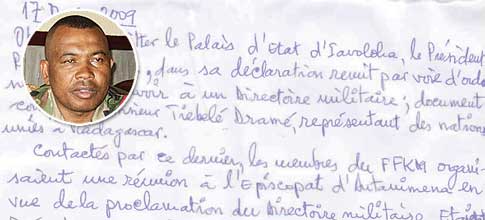 17 2009
le Palais d'Etat d'Iavoloha, le Président
dans sa déclaration remit par voie d'ordo
à un Directoire militaire; document
Tiebelé Dramé, représentant des nations
unies à Madagascar.
Contactés par ce dernier, les membres du FFKM organi-
saient une réunion à l'Episcopat d'Antanimena en
vue de la proclamation du Directoire militaire. Etaient